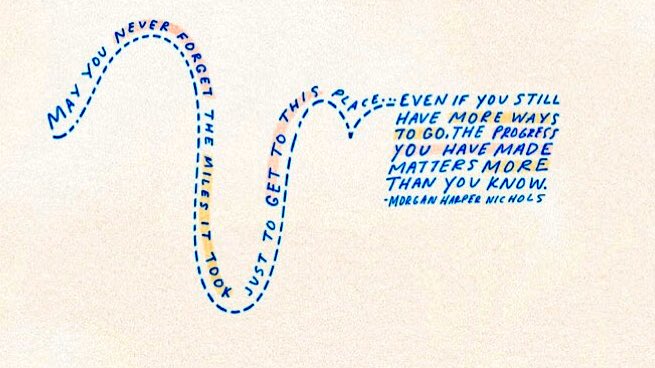 MAY YOU NEVER FORGET THE MILES IT TOOK JUST TO GET TO THIS PLACE...
EVEN IF YOU STILL
HAVE MORE WAYS
TO GO, THE PROGRESS
YOU HAVE MADE
MATTERS MORE
THAN YOU KNOW.
-MORGAN HARPER NICHOLS